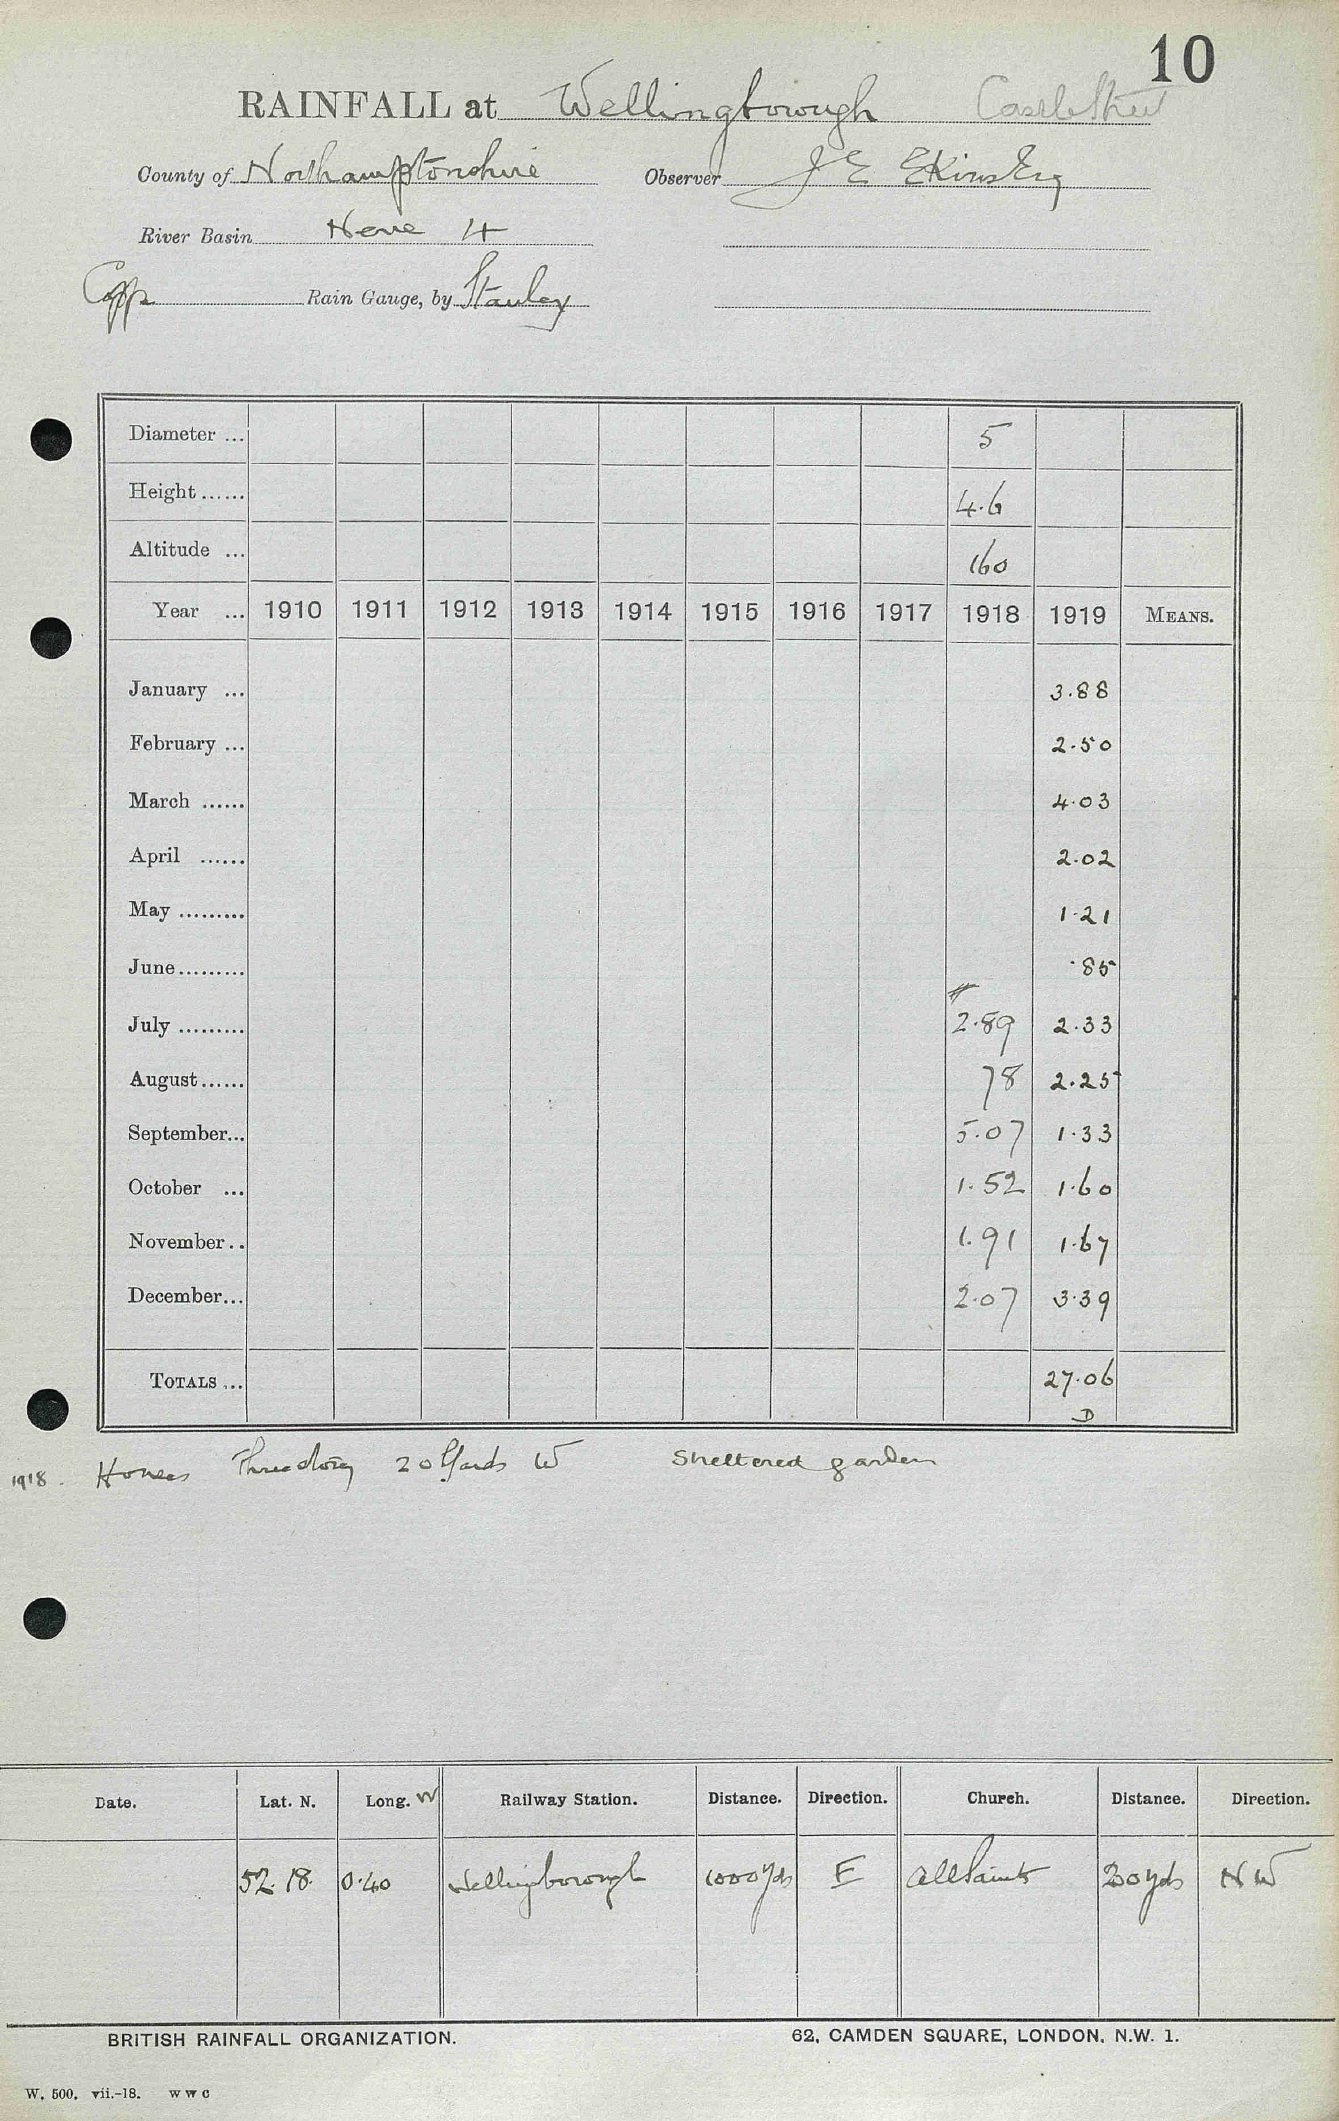 10
RAINFALL at Wellingborough Castle Street
County of Northamptonshire Observer J E Ekins Esq
River Basin Nene 4
Copp Rain Gauge, by Stanley
Diameter ... 5
Height ...... 4.6
Altitude ... 160
Year ... 1910 1911 1912 1913 1914 1915 1916 1917 1918 1919 MEANS.
January ... 3.88
February ... 2.50
March ...... 4.03
April ...... 2.02
May ......... 1.21
June ......... .85
July ......... 2.89 2.33
August ...... 78 2.25
September... 5.07 1.33
October ... 1.52 1.60
November .. 1.91 1.67
December... 2.07 3.39
TOTALS ... 27.06
D
1918. Houses 20 yards W Sheltered garden
Date. Lat. N. Long. W Railway Station. Distance. Direction. Church. Distance. Direction.
52.18. 0.40 Wellingborough 1000 yds E All Saints 30 yds N W
BRITISH RAINFALL ORGANIZATION. 62, CAMDEN SQUARE, LONDON, N.W. 1.
W. 500. vii.-18. w w c